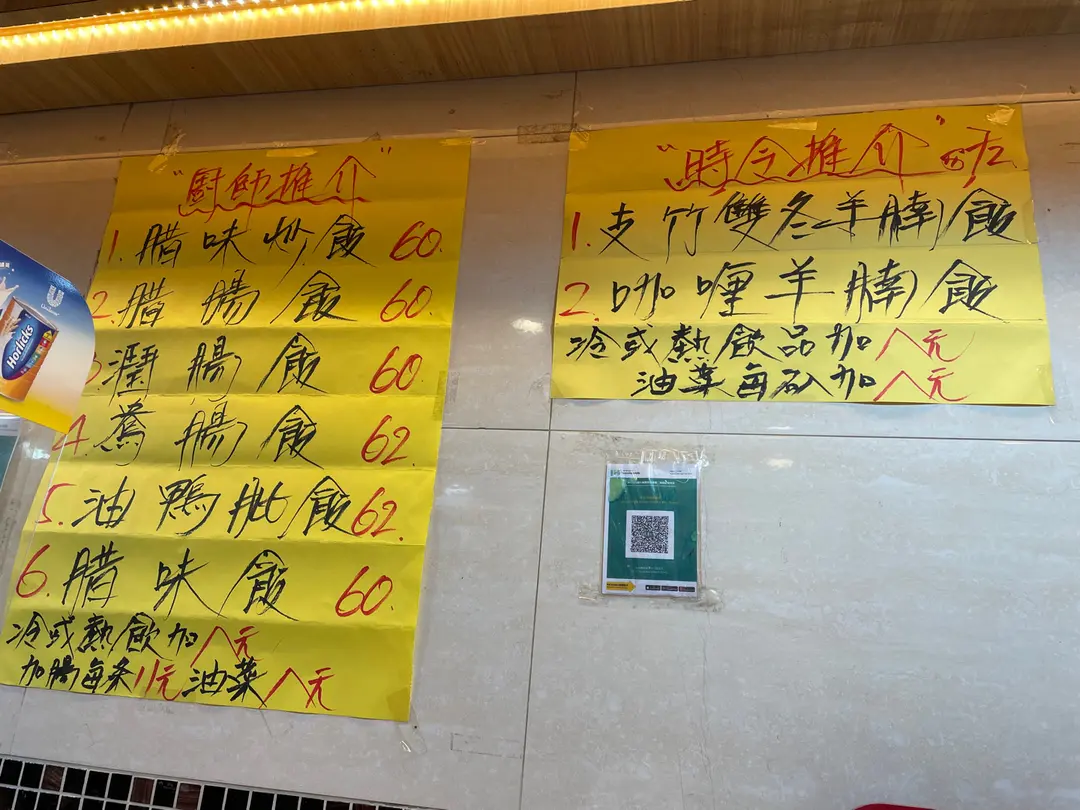 "廚師推介"
1. 腊味炒飯 60.
2. 腊腸飯 60.
3 潤腸飯 60
4. 鴛腸飯 62
5. 油鴨批飯 62.
6. 腊味飯 60.
冷或熱飲加八元
加腸每条11元油菜八元
"時令推介"
1. 支竹雙冬羊腩飯
2. 咖喱羊腩飯
冷或熱飲品加八元
油菜每砵加八元
Unilever
Horlicks